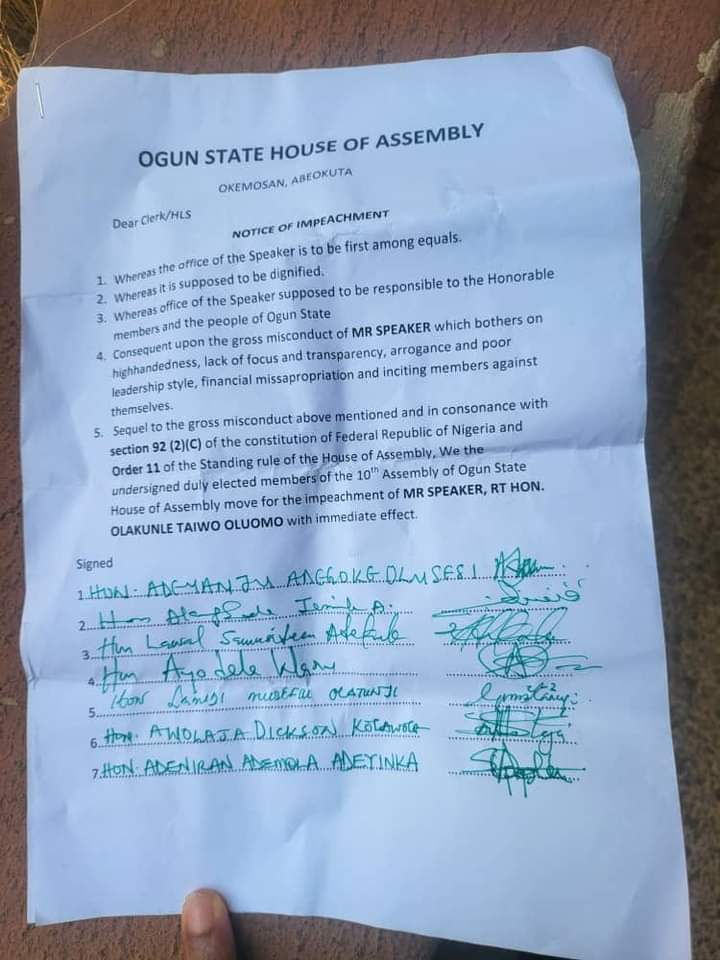 OGUN STATE HOUSE OF ASSEMBLY
OKEMOSAN, ABEOKUTA
Dear Clerk/HLS
NOTICE OF IMPEACHMENT
1. Whereas the office of the Speaker is to be first among equals.
2. Whereas it is supposed to be dignified.
3. Whereas office of the Speaker supposed to be responsible to the Honorable
members and the people of Ogun State
4. Consequent upon the gross misconduct of MR SPEAKER which bothers on
highhandedness, lack of focus and transparency, arrogance and poor
leadership style, financial missapropriation and inciting members against
themselves.
5. Sequel to the gross misconduct above mentioned and in consonance with
section 92 (2)(C) of the constitution of Federal Republic of Nigeria and
Order 11 of the Standing rule of the House of Assembly, We the
undersigned duly elected members of the 10th Assembly of Ogun State
House of Assembly move for the impeachment of MR SPEAKER, RT HON.
OLAKUNLE TAIWO OLUOMO with immediate effect.
Signed
1. HON. ADEYANJU ADEGOKE OLUSESI
2. Hon
3. Hon Lawal Adekunle
4. Hon Ayodele
5. Hon LAMIDI MUSEFIU OLATUNJI
6. Hon. AWOLAJA DICKSON KOLAWOLE
7. HON. ADENIRAN ADEMOLA ADEYINKA